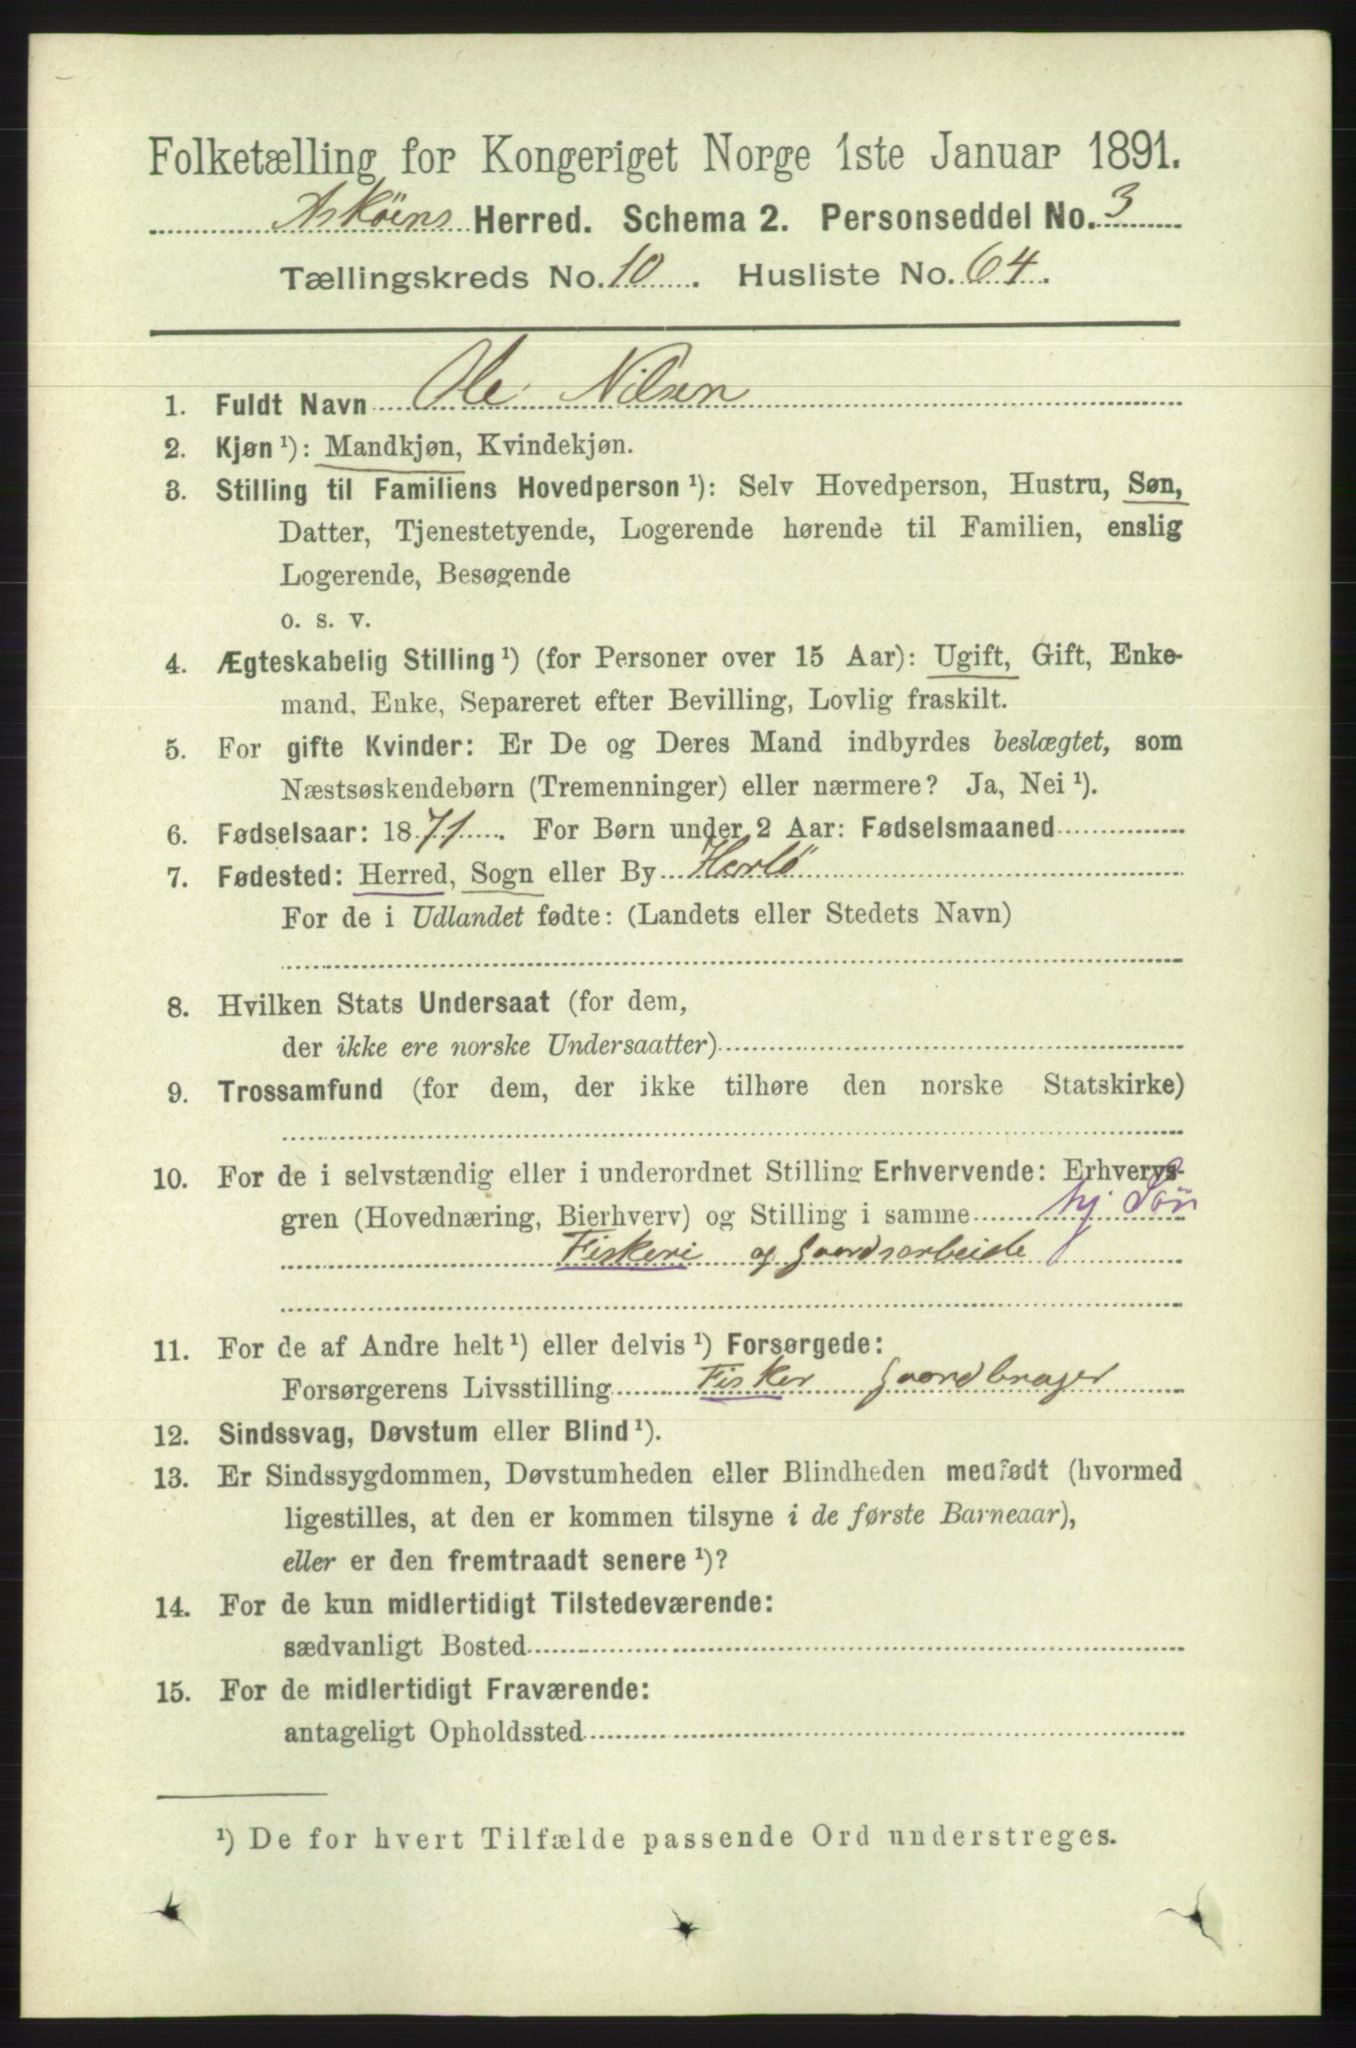 Folketælling for Kongeriget Norge 1ste Januar 1891.
Askøens Herred. Schema 2. Personseddel No. 3
Tællingskreds No. 10. Husliste No. 64.
1. Fuldt Navn Ole Nilsen
2. Kjøn ¹): Mandkjøn, Kvindekjøn.
3. Stilling til Familiens Hovedperson ¹): Selv Hovedperson, Hustru, Søn,
Datter, Tjenestetyende, Logerende hørende til Familien, enslig
Logerende, Besøgende
o. s. v.
4. Ægteskabelig Stilling ¹) (for Personer over 15 Aar): Ugift, Gift, Enke-
mand, Enke, Separeret efter Bevilling, Lovlig fraskilt.
5. For gifte Kvinder: Er De og Deres Mand indbyrdes beslægtet, som
Næstsøskendebørn (Tremenninger) eller nærmere? Ja, Nei ¹).
6. Fødselsaar: 1871. For Børn under 2 Aar: Fødselsmaaned
7. Fødested: Herred, Sogn eller By Herlö
For de i Udlandet fødte: (Landets eller Stedets Navn)
8. Hvilken Stats Undersaat (for dem,
der ikke ere norske Undersaatter)
9. Trossamfund (for dem, der ikke tilhøre den norske Statskirke)
10. For de i selvstændig eller i underordnet Stilling Erhvervende: Erhvervs-
gren (Hovednæring, Bierhverv) og Stilling i samme hj. Sön
Fiskeri og Gaardsarbeide
11. For de af Andre helt ¹) eller delvis ¹) Forsørgede:
Forsørgerens Livsstilling Fisker Gaardbruger
12. Sindssvag, Døvstum eller Blind ¹).
13. Er Sindssygdommen, Døvstumheden eller Blindheden medfødt (hvormed
ligestilles, at den er kommen tilsyne i de første Barneaar),
eller er den fremtraadt senere ¹)?
14. For de kun midlertidigt Tilstedeværende:
sædvanligt Bosted
15. For de midlertidigt Fraværende:
antageligt Opholdssted
¹) De for hvert Tilfælde passende Ord understreges.